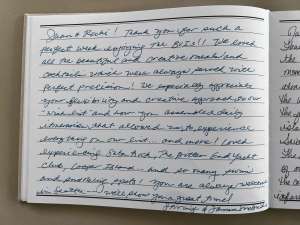 Thank you for such a
perfect week enjoying the BVI's!! We loved
all the beautiful and creative meals and
cocktails which were always served with
perfect precision! We especially appreciate
your flexibility and creative approach to our
"wish list" and how you assembled daily
itineraries that allowed us to experience
everything on our list.. and more! Loved
experiencing Saba Rock, The Bitter End Yacht
Club, Cooper Island and so many
and snorkeling spots! You are always welcome
in Seattle we'll show you a great time!